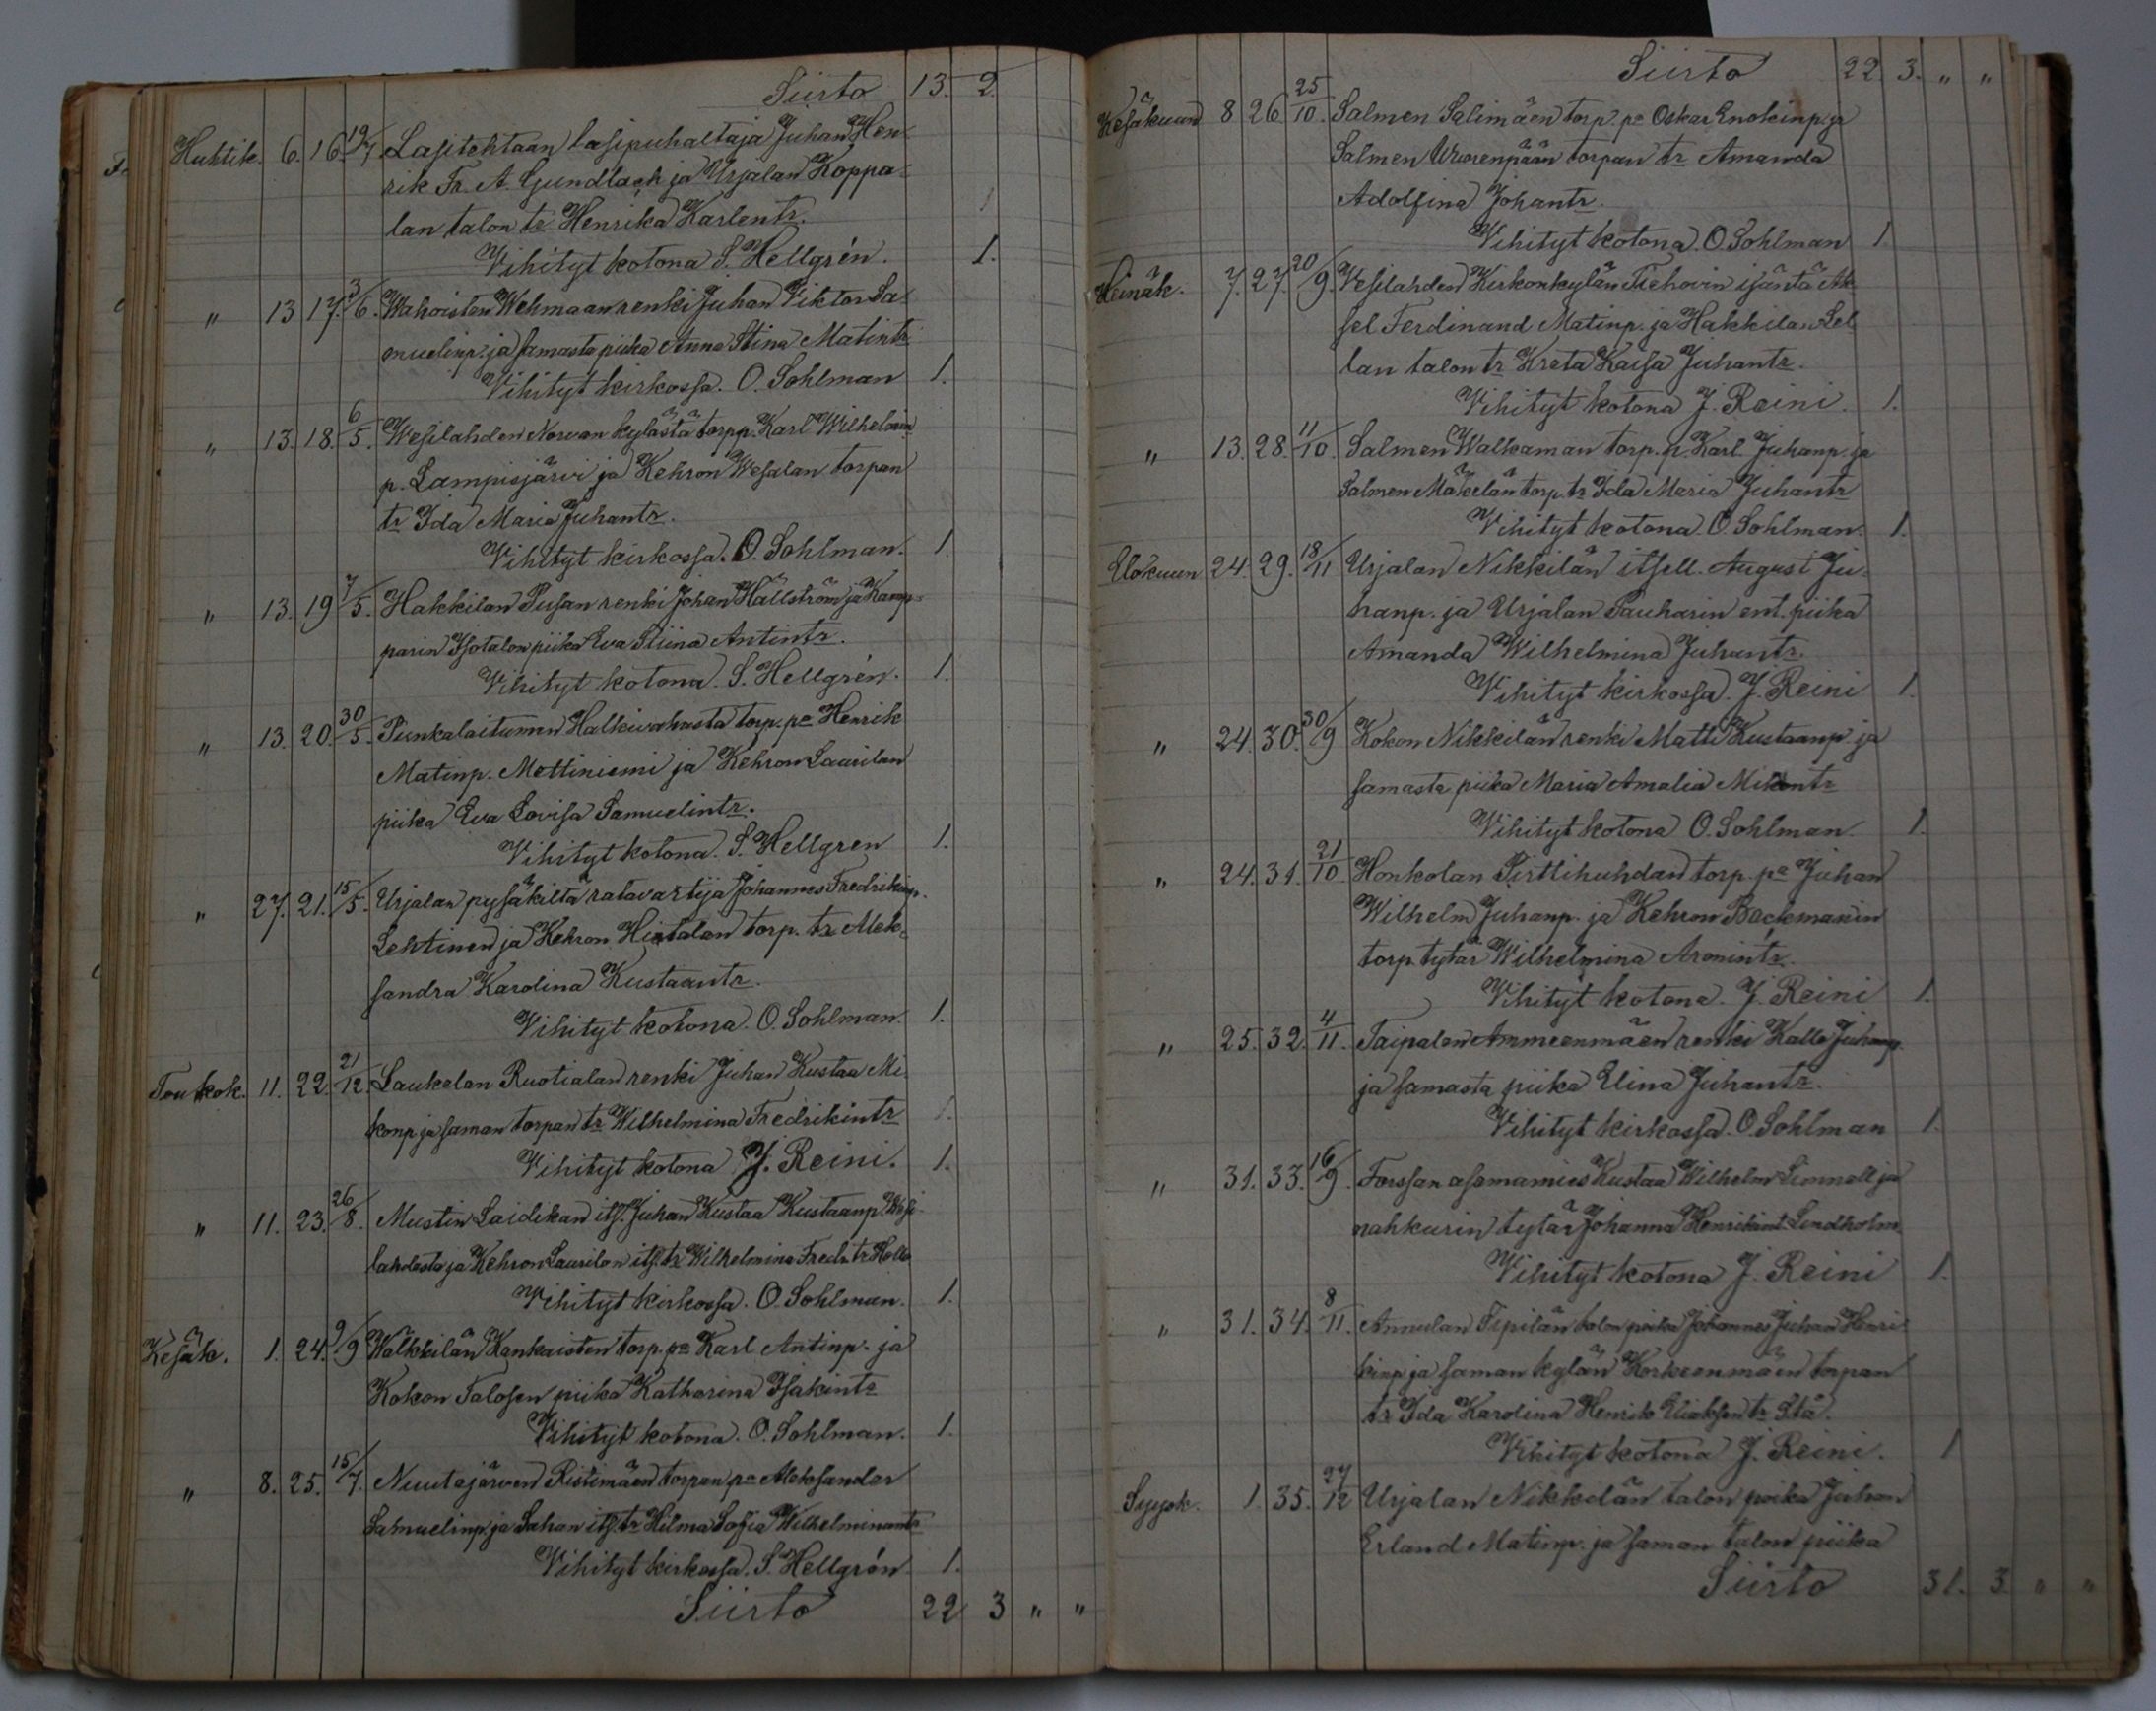 Siirto 13. 2.
Huhtik. 6. 16. 19/7 Lasitehtaan lasipuhaltaja Juhan Hen-
rik Fr. A. Gundlach ja Urjalan Koppa-
lan talon tr Henrika Karlentr.
Vihityt kotona S. Hellgrén. 1.
" 13 17. 3/6. Wahoisten Wehmaan renki Juhan Viktor Sa-
muelinp. ja samasta piika Anna Stina Matintr
Vihityt kirkossa. O. Sohlman 1.
" 13. 18. 6/5. Wesilahden Norvan kylästä torpp. Karl Wilhelmin
p. Lampisjärvi ja Kehron Wesalan torpan
tr Ida Maria Juhantr.
Vihityt kirkossa. O. Sohlman. 1.
" 13. 19 7/5. Hakkilan Pusan renki Johan Hällström ja Kamp-
parin Isotalon piika Eva Stiina Antintr.
Vihityt kotona. S. Hellgrén. 1.
" 13. 20. 30/5. Punkalaitumen Halkivahasta torp. pa Henrik
Matinp. Mettiniemi ja Kehron Laurilan
piika Eva Lovisa Samuelintr.
Vihityt kotona. S. Hellgren 1.
" 27. 21. 15/5. Urjalan pysäkiltä ratavartija Johannes Fredrikinp.
Lehtinen ja Kehron Hietalan torp. tr Alek-
sandra Karolina Kustaantr.
Vihityt kotona. O. Sohlman. 1.
Toukok. 11. 22. 21/12. Laukelan Ruotialan renki Juhan Kustaa Mi-
konp ja saman torpan tr Wilhelmina Fredrikintr
Vihityt kotona J. Reini. 1.
" 11. 23. 26/8. Mustin Laidikan its. Juhan Kustaa Kustaanp Wesi-
lahdesta ja Kehron Laurilan its. tr Wilhelmina Fredr. tr
Vihityt kirkossa. O. Sohlman. 1.
Kesäk. 1. 24. 9/9 Wälkkilän Kankaisten torp. pa Karl Antinp. ja
Kokon Talosen piika Katharina Isakintr
Vihityt kotona. O. Sohlman. 1.
" 8. 25. 15/7. Nuutajärven Ristimäen torpan pa Aleksander
Samuelinp ja Sahan its. tr Hilma Sofia Wilhelminantr
Vihityt kirkossa. S. Hellgrén. 1.
Siirto 22 3 " "
Siirto 22. 3. " "
Kesäkuun 8 26 25/10. Salmen Salimäen torp. pa Oskar Enokinp. ja
Salmen Wuorenpään torpan tr Amanda
Adolfina Johantr.
Vihityt kotona. O. Sohlman 1
Heinäk. 7. 27. 20/9. Vesilahden Kirkonkylän Tiehovin isäntä Ak-
sel Ferdinand Matinp. ja Hakkilan Sel-
lan talon tr Kreta Kaisa Juhantr.
Vihityt kotona J. Reini. 1.
" 13. 28. 11/10. Salmen Walkaman torp. p. Karl Juhanp. ja
Salmen Mäkelän torp. tr Ida Maria Juhantr
Vihityt kotona. O. Sohlman. 1.
Elokuun 24. 29. 18/11 Urjalan Nikkilän itsell. August Ju-
hanp. ja Urjalan Pauharin ent. piika
Amanda Wilhelmina Juhantr.
Vihityt kirkossa. J. Reini 1.
" 24. 30. 30/9 Kokon Nikkilän renki Matti Kustaanp. ja
samasta piika Maria Amalia Mikontr
Vihityt kotona O. Sohlman. 1.
" 24. 31. 21/10 Honkolan Pirttihuhdan torp. pa Juhan
Wilhelm Juhanp. ja Kehron Backmanin
torp. tytär Wilhelmina Aronintr.
Vihityt kotona. J. Reini 1.
" 25. 32. 4/11. Taipalen Ammeenmäen renki Kalle Juhanp.
ja samasta piika Elina Juhantr.
Vihityt kirkossa. O. Sohlman 1.
" 31. 33. 16/9. Forssan asemamies Kustaa Wilhelm Limnell ja
nahkurin tytär Johanna Henrikint. Lindholm.
Vihityt kotona J. Reini 1.
" 31. 34. 8/11. Annulan Sipilän talon poika Johannes Juhan Henri-
kinp ja saman kylän Korkeenmäen torpan
tr Ida Karolina Henrik Eliaksen tr
Vihityt kotona J. Reini. 1
Syysk. 1. 35. 27/12 Urjalan Nikkilän talon poika Juhan
Erland Matinp. ja saman talon piika
Siirto 31. 3 " "